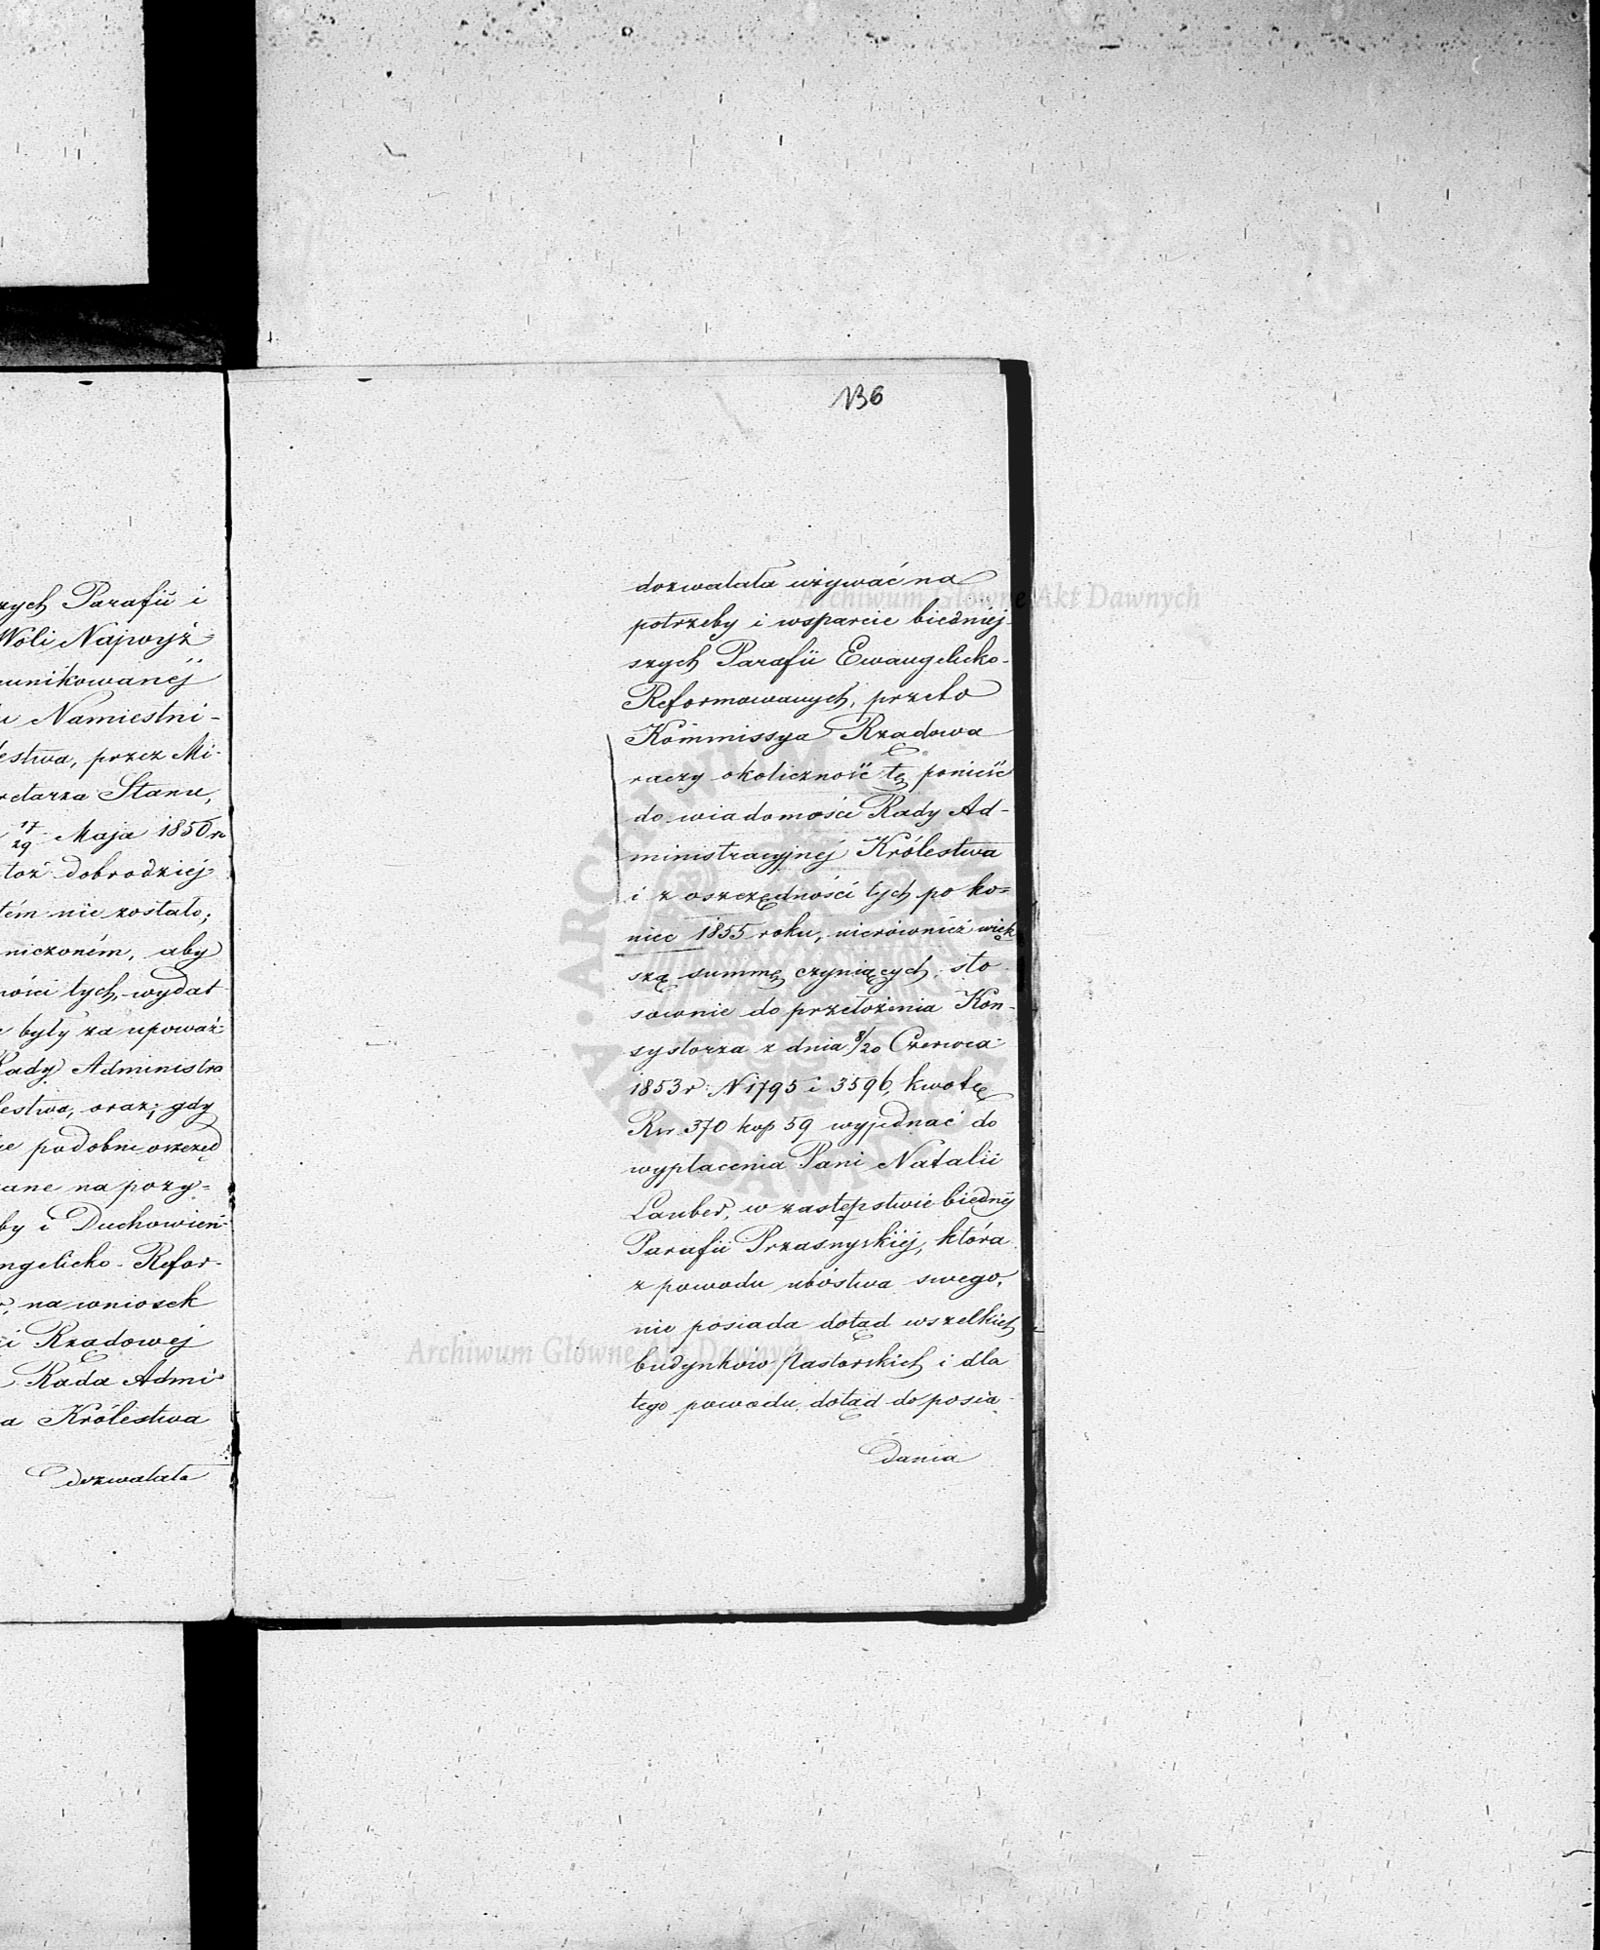 zych Parafii i
Woli Najwyż
unikowanéj
u Namiestni-
lestwa, przez Mi-
retarza Stanu,
17/29 Maja 1850 r
toż dobrodziej-
tém nie zostało;
niczoném, aby
ności tych, wydat
e były za upoważ-
Rady Administra
lestwa, oraz, gdy
ie podobne oszczęd
ane na pozy-
by i Duchowień-
ngelicko-Refor-
na wniosek
i Rządowej
Rada Admi-
a Królestwa
dozwalała
136
dozwalała używać na
potrzeby i wsparcie biedniej-
szych Parafii Ewangelicko-
Reformowanych, przeto
Kommissya Rządowa
raczy okoliczność tę ponieść
do wiadomości Rady Ad-
ministracyjnéj Królestwa
i z oszczędności tych po ko-
niec 1855 roku, nierównież więk
szą summę czyniących, sto
sownie do przełożenia Kon-
systorza z dnia 8/20 Czerwca
1853 r. N 1795 i 3596, kwotę
Rsr. 370 kop 59 wyjednać do
wypłacenia Pani Natalii
Lauber, w zastępstwie biednéj
Parafii Przasnyskiéj, która
z powodu ubóstwa swego,
nie posiada dotąd wszelkich
budynków Pastorskich i dla
tego powodu dotąd do posia-
dania
Archiwum Główne Akt Dawnych
Archiwum Główne Akt Dawnych
ARCHIWUM GŁÓWNE AKT DAWNYCH